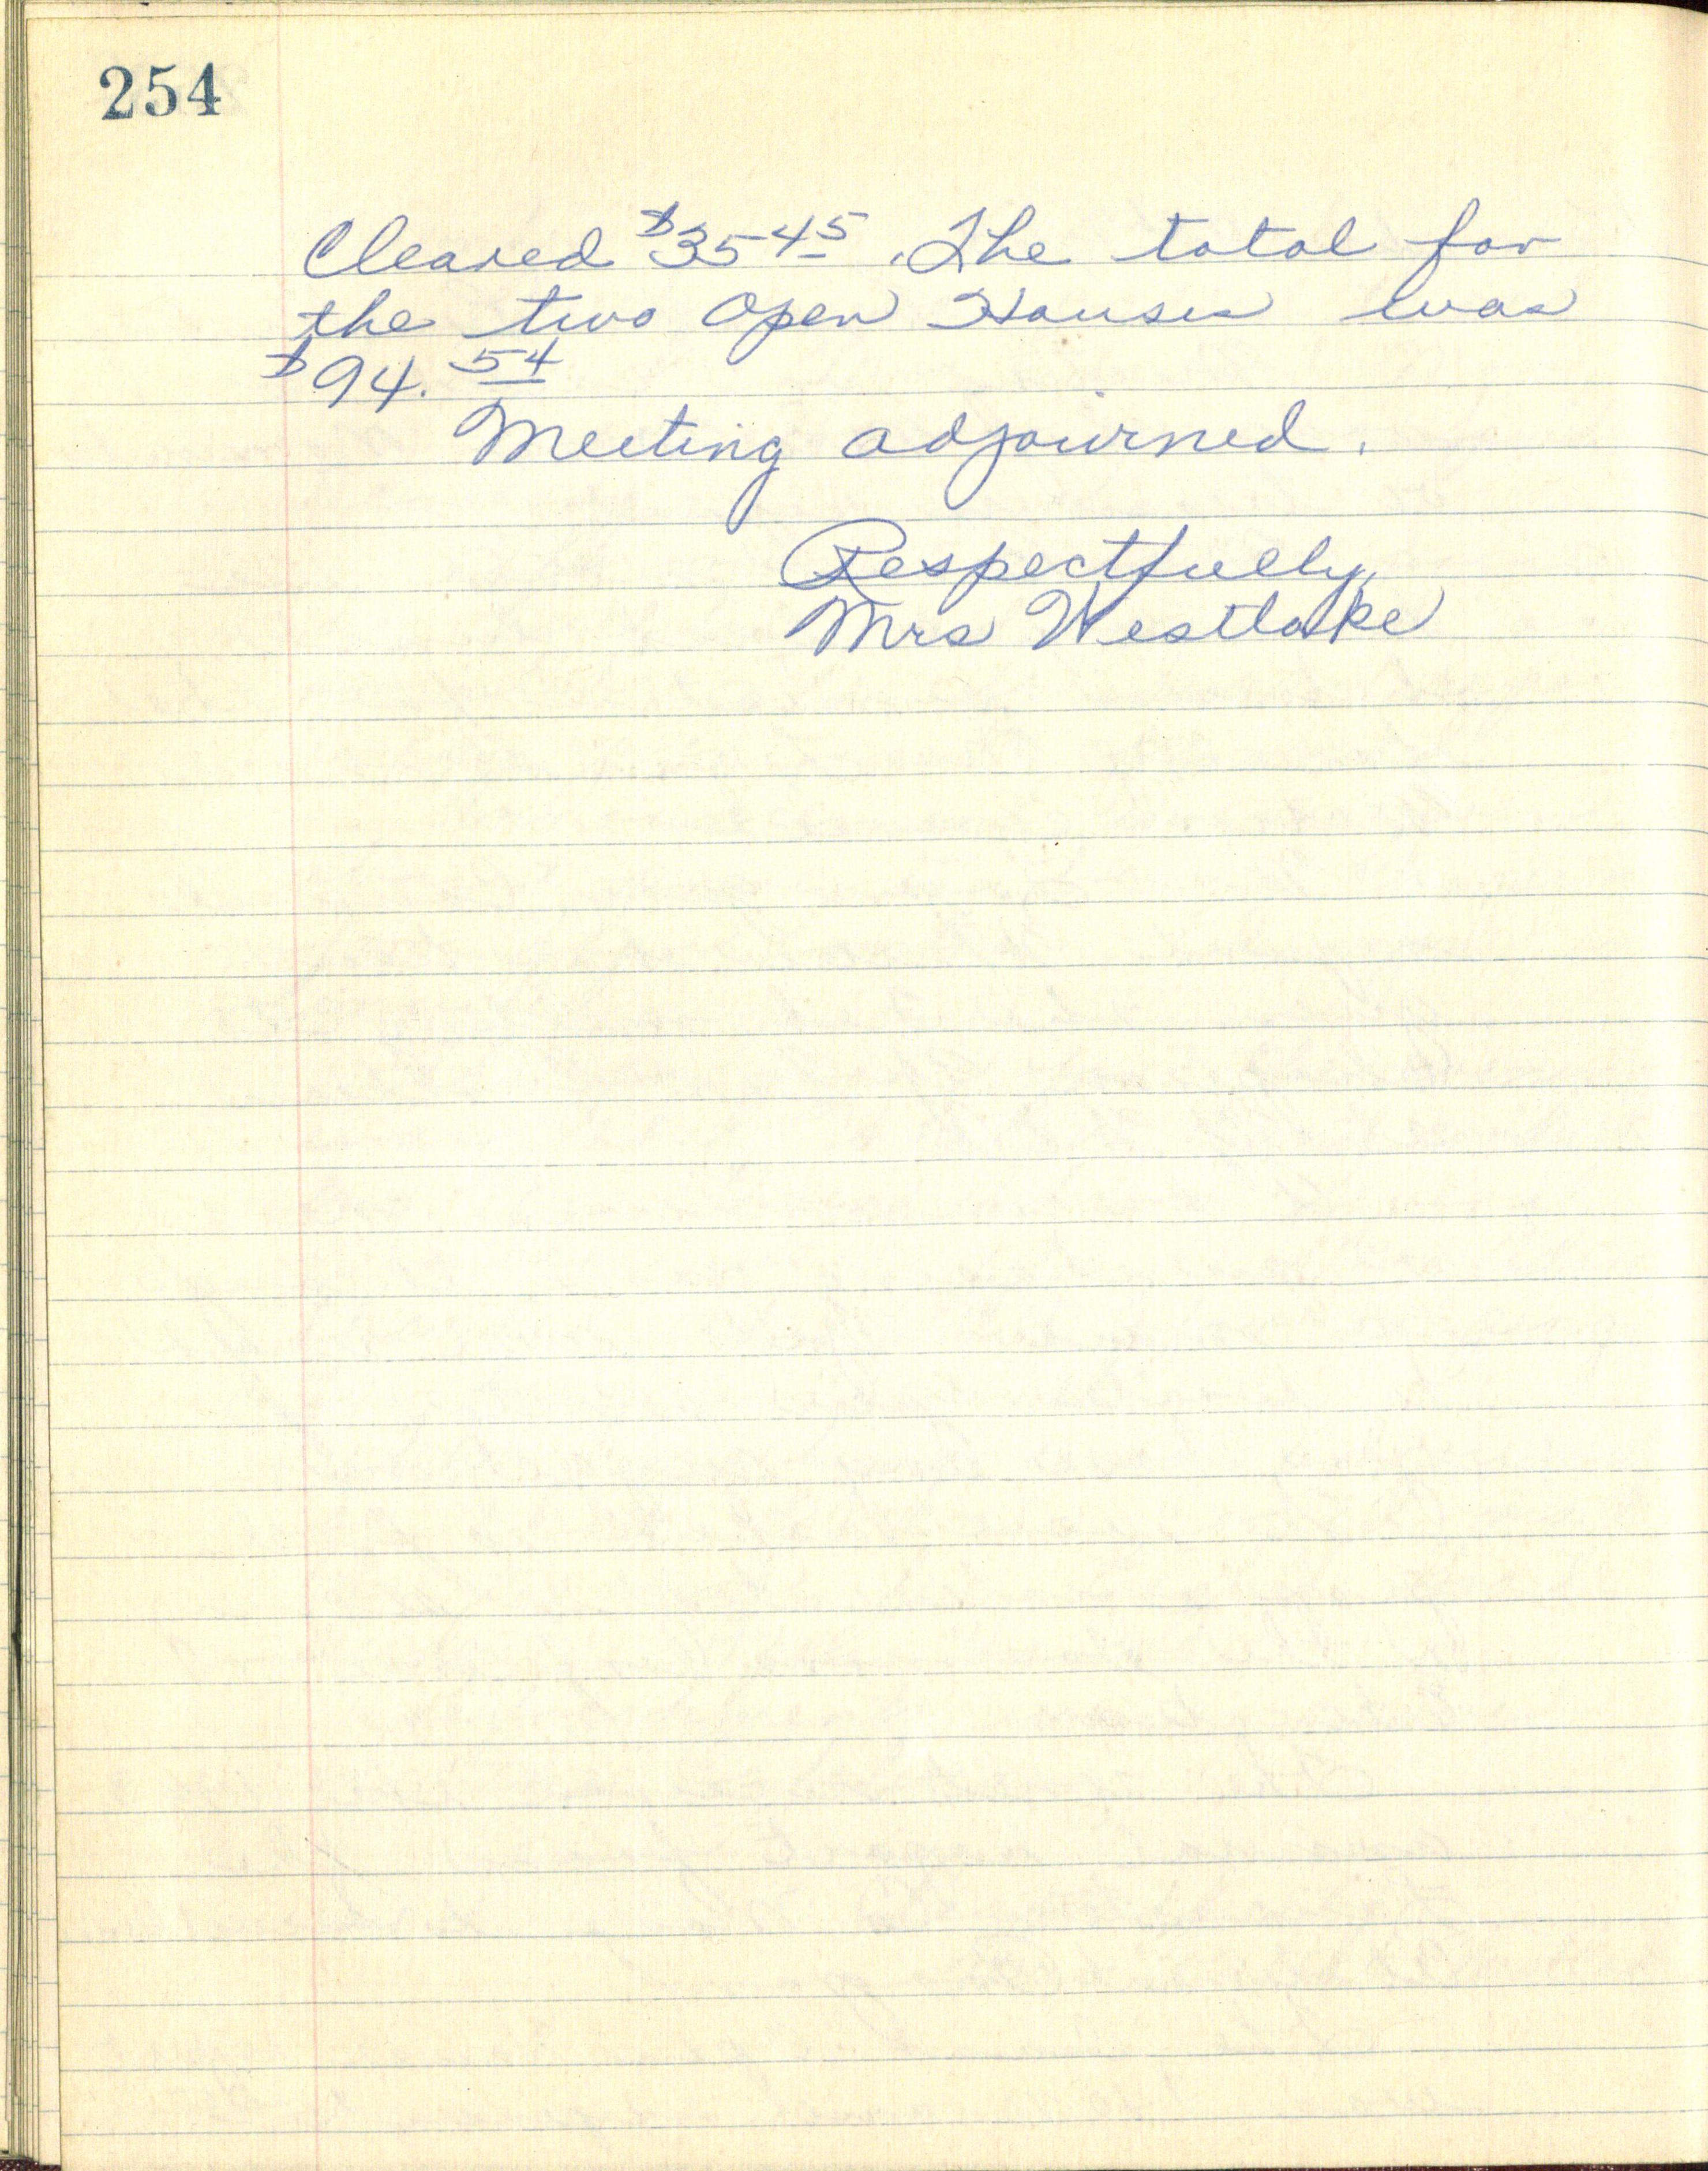 254
Cleared $35 45. The total for
the two Open Houses was
$94. 54
Meeting adjourned.
Respectfully,
Mrs Westlake